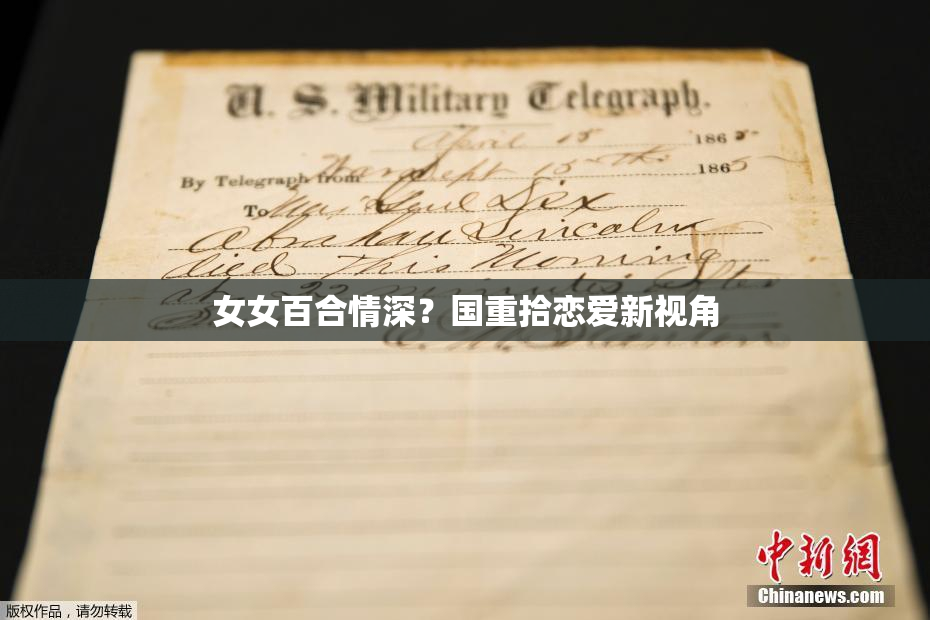 U. S. Military Telegraph.
April 15 1865
By Telegraph from War Dept 15th 1865
To Maj Genl Dix
Abraham Lincoln
died This Morning
at 22 minutes after
女女百合情深？国重拾恋爱新视角
中新網
Chinanews.com
版权作品，请勿转载